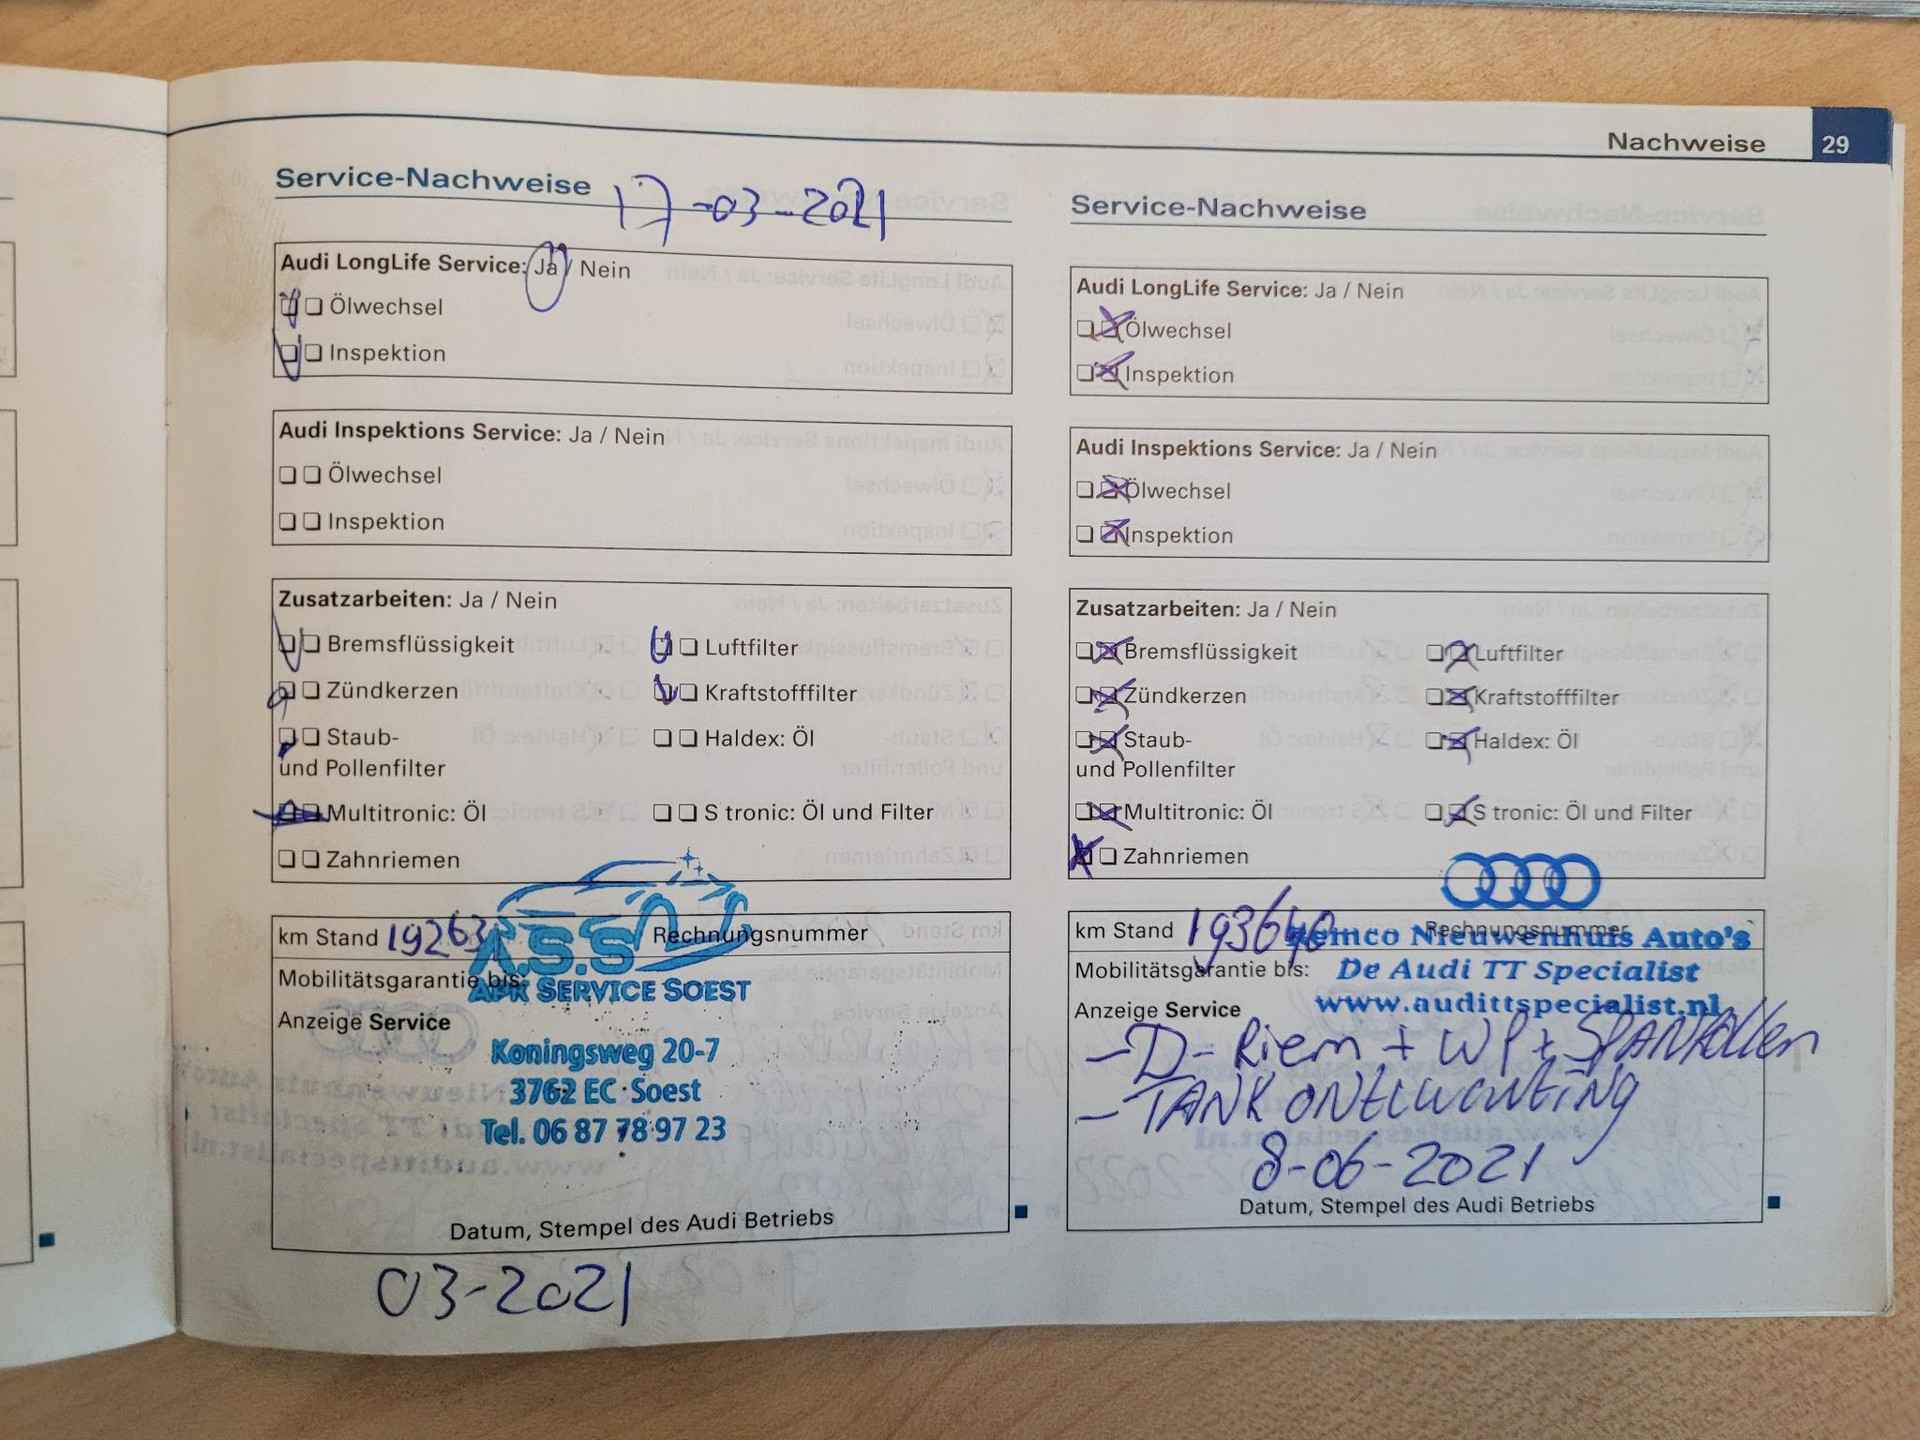 Nachweise 29
Service-Nachweise 17-03-2021
Audi LongLife Service: Ja / Nein
Ölwechsel
Inspektion
Audi Inspektions Service: Ja / Nein
Ölwechsel
Inspektion
Zusatzarbeiten: Ja / Nein
Bremsflüssigkeit Luftfilter
Zündkerzen Kraftstofffilter
Staub- Haldex: Öl
und Pollenfilter
Multitronic: Öl S tronic: Öl und Filter
Zahnriemen
km Stand 19263 Rechnungsnummer
A.S.S
Mobilitätsgarantie bis:
APK SERVICE SOEST
Anzeige Service
Koningsweg 20-7
3762 EC Soest
Tel. 06 87 78 97 23
Datum, Stempel des Audi Betriebs
03-2021
Service-Nachweise
Audi LongLife Service: Ja / Nein
Ölwechsel
Inspektion
Audi Inspektions Service: Ja / Nein
Ölwechsel
Inspektion
Zusatzarbeiten: Ja / Nein
Bremsflüssigkeit Luftfilter
Zündkerzen Kraftstofffilter
Staub- Haldex: Öl
und Pollenfilter
Multitronic: Öl S tronic: Öl und Filter
Zahnriemen
km Stand 193640 Rechnungsnummer
Remco Nieuwenhuis Auto's
Mobilitätsgarantie bis: De Audi TT Specialist
www.audittspecialist.nl
Anzeige Service
- D-Riem + WP + SPANROLLEN
- TANK ONTLUCHTING
8-06-2021
Datum, Stempel des Audi Betriebs